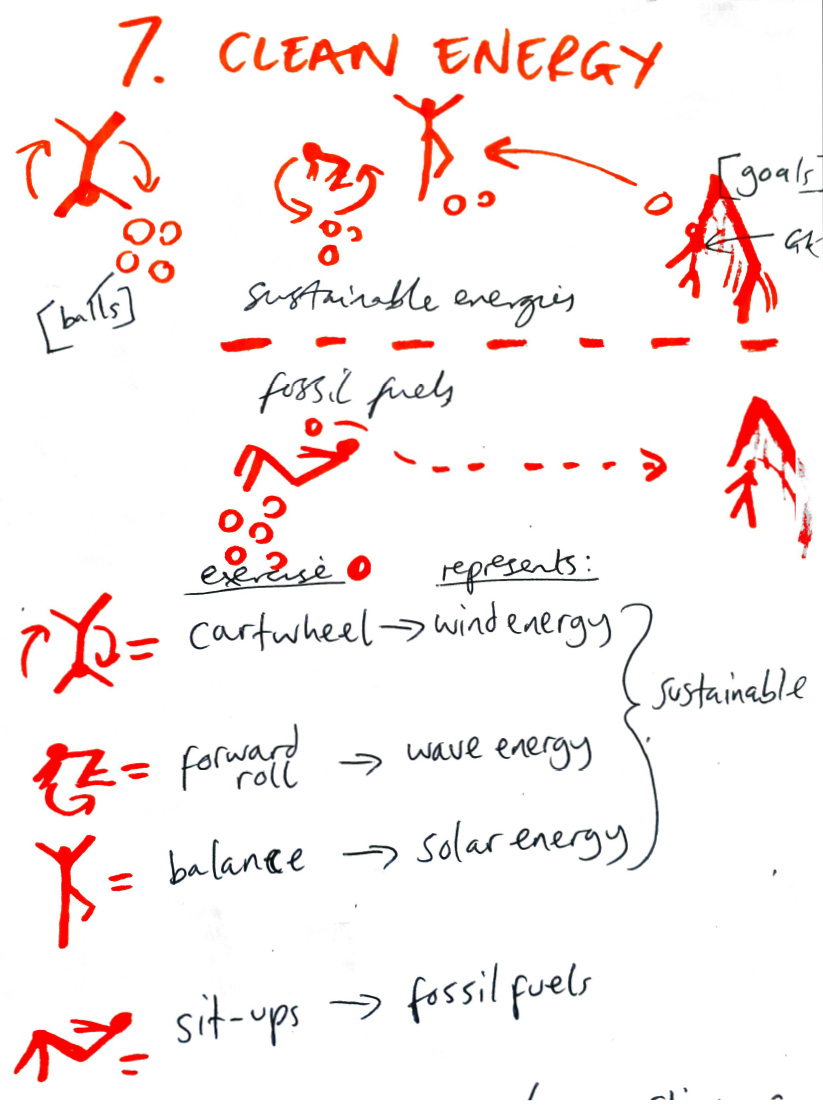 7. CLEAN ENERGY
[goals]
GK
[balls]
sustainable energies
fossil fuels
exercise represents:
= cartwheel → wind energy
sustainable
= forward roll → wave energy
= balance → solar energy
= sit-ups → fossil fuels